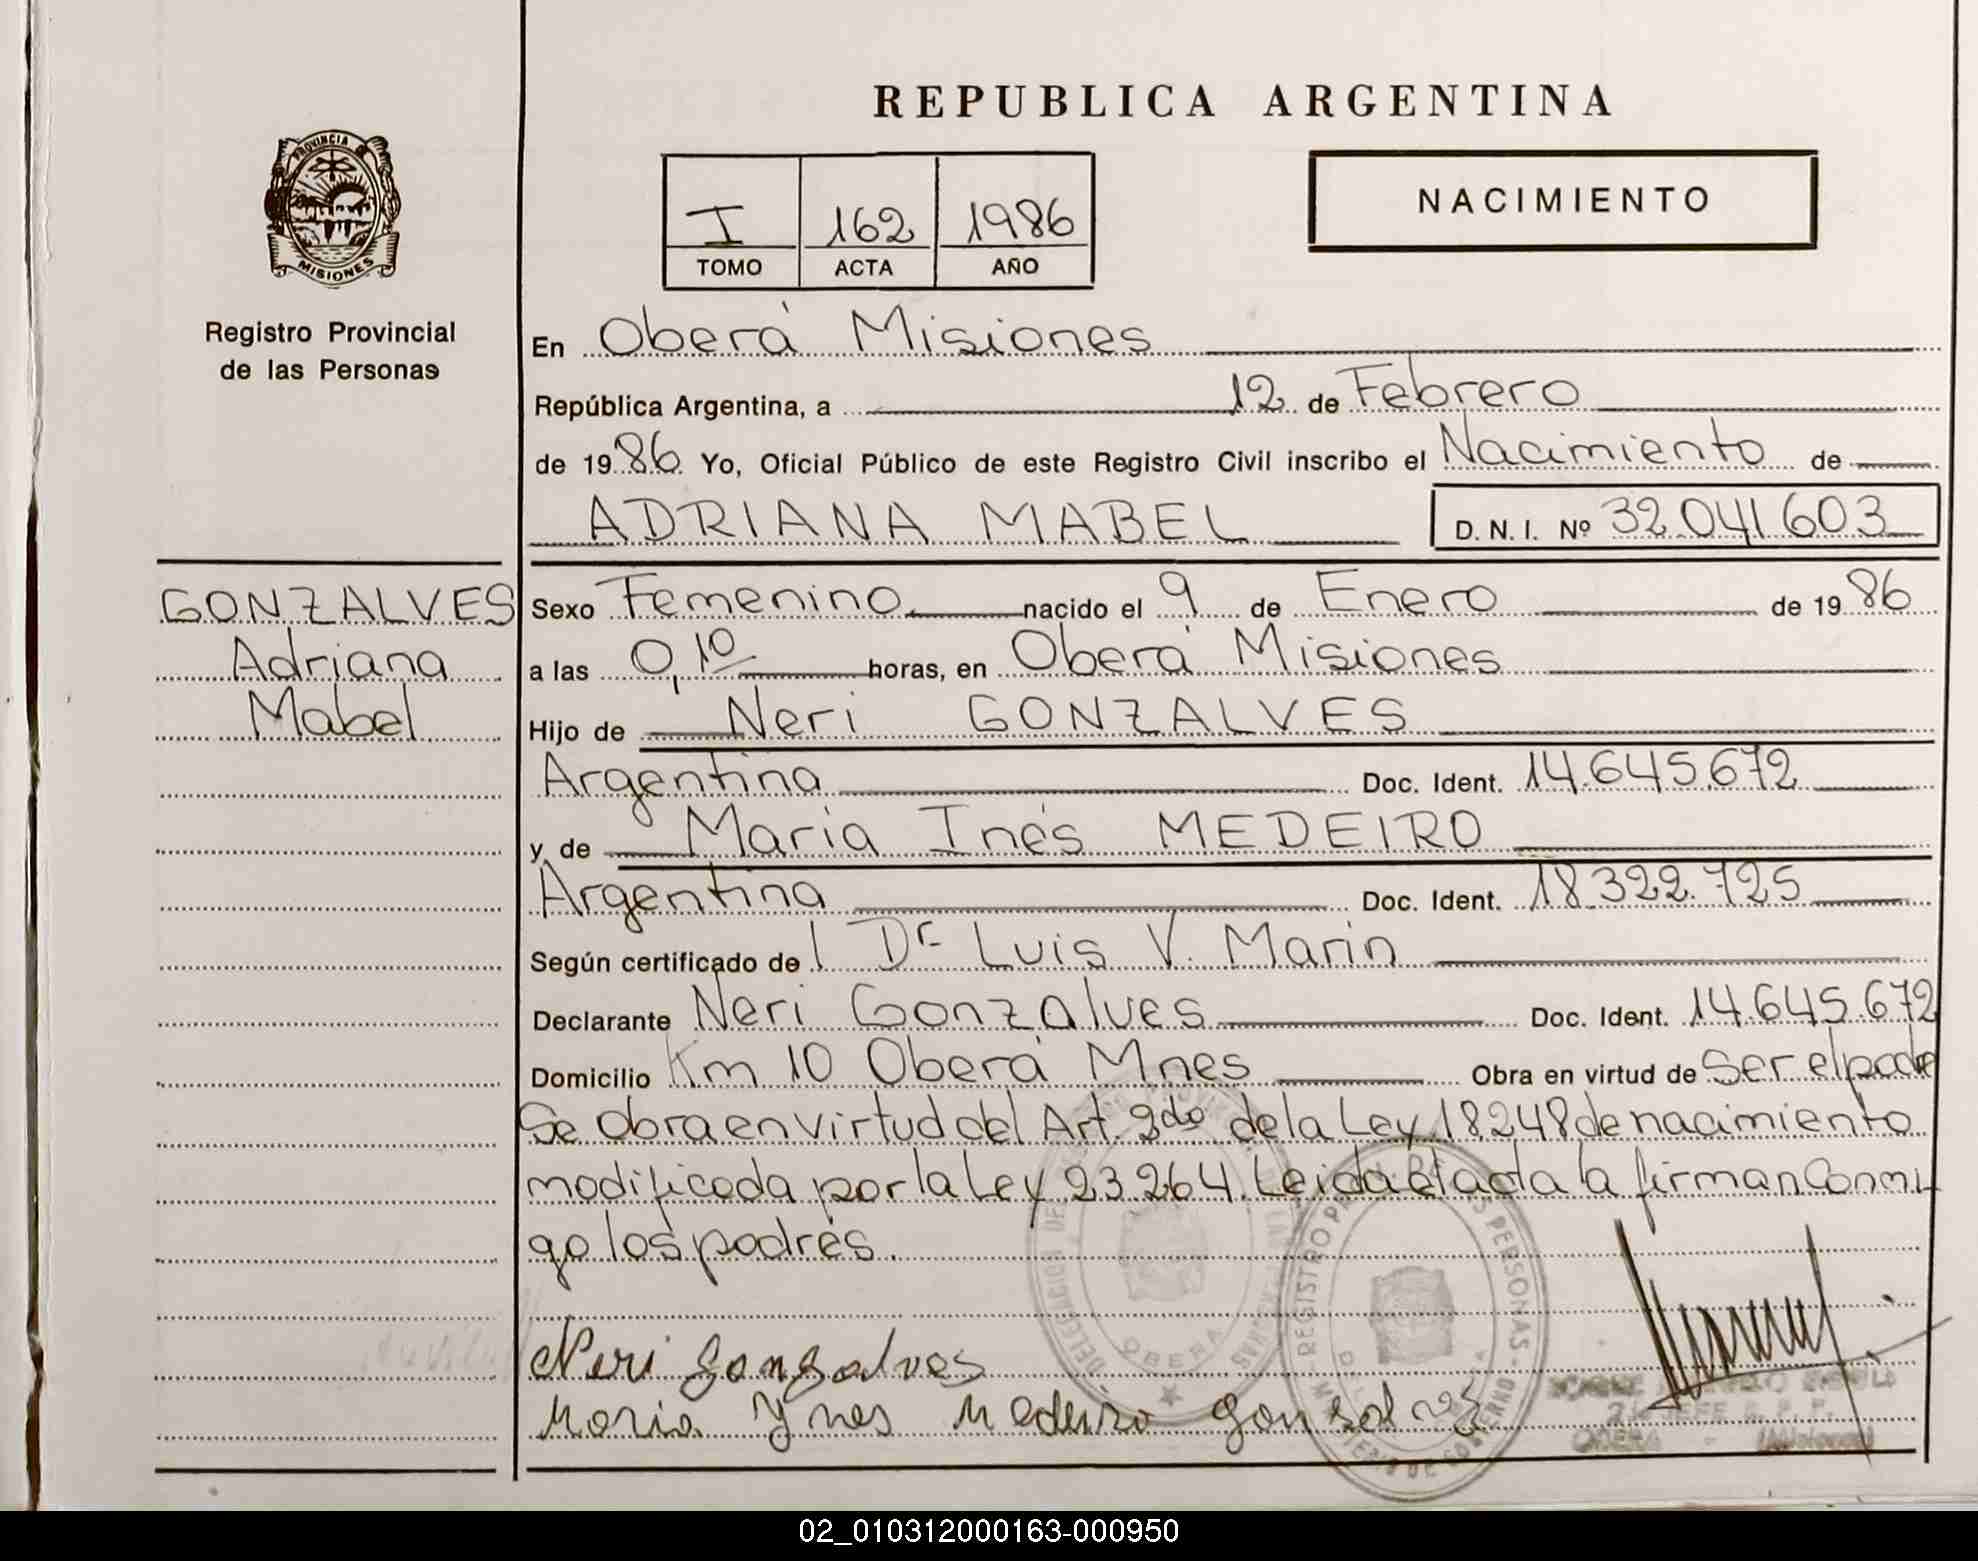 REPUBLICA ARGENTINA
PROVINCIA DE
MISIONES
Registro Provincial
de las Personas
I 162 1986
TOMO ACTA AÑO
NACIMIENTO
En Oberá Misiones
República Argentina, a 12 de Febrero
de 1986 Yo, Oficial Público de este Registro Civil inscribo el Nacimiento de
ADRIANA MABEL D.N.I. Nº 32.041.603
GONZALVES
Adriana
Mabel
Sexo Femenino nacido el 9 de Enero de 1986
a las 0,10 horas, en Oberá Misiones
Hijo de Neri GONZALVES
Argentina Doc. Ident. 14.645.672
y de Maria Inés MEDEIRO
Argentina Doc. Ident. 18.322.725
Según certificado del Dr Luis V. Marin
Declarante Neri Gonzalves Doc. Ident. 14.645.672
Domicilio Km 10 Oberá Mnes Obra en virtud de Ser el padre
Se obra en virtud del Art. 2do de la Ley 18.248 de nacimiento
modificada por la Ley 23.264. Leida el acta la firman Conmi
go los padres.
Neri Gonzalves
Maria Ynes Medeiro
OBERA
02_010312000163-000950